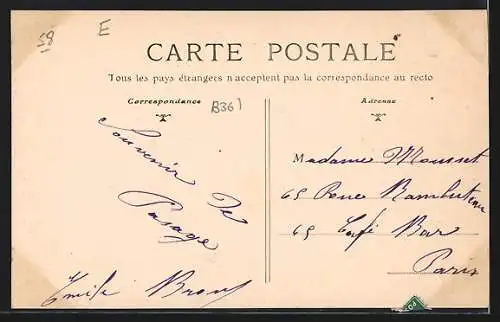 58 E
CARTE POSTALE
Tous les pays étrangers n'acceptent pas la correspondance au recto
Correspondance
B361
Adresse
Souvenir de
Passage
Emile
Madame Mousset
65 Rue Rambuteau
65 Café Bar
Paris